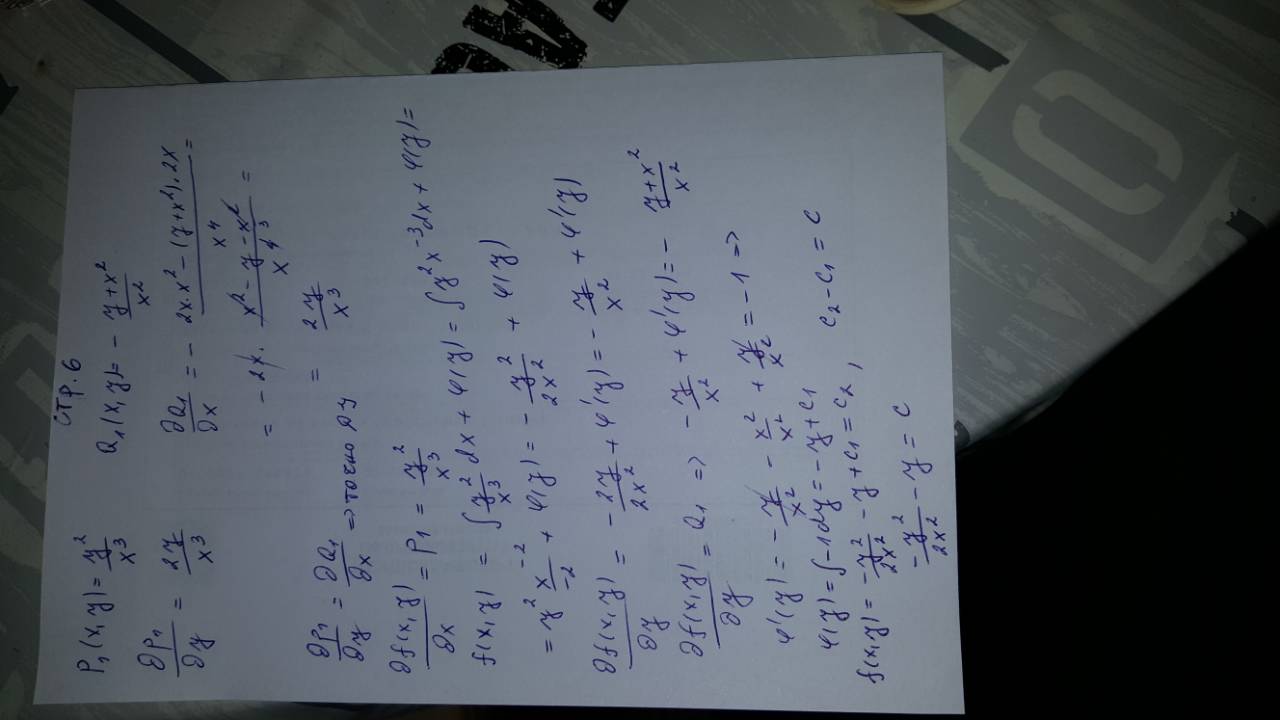 стр. 6
P₁(x,y) = y²/x³ Q₁(x,y) = - (y+x²)/x²
∂P₁/∂y = 2y/x³ ∂Q₁/∂x = - (2x·x² - (y+x²)·2x)/x⁴ =
= -2x · (x² - y - x²)/x⁴ ³ =
= 2y/x³
∂P₁/∂y = ∂Q₁/∂x => точно ДУ
∂f(x,y)/∂x = P₁ = y²/x³
f(x,y) = ∫ y²/x³ dx + φ(y) = ∫ y² x⁻³ dx + φ(y) =
= y² x⁻²/-2 + φ(y) = - y²/2x² + φ(y)
∂f(x,y)/∂y = - 2y/2x² + φ'(y) = - y/x² + φ'(y)
∂f(x,y)/∂y = Q₁ => - y/x² + φ'(y) = - (y+x²)/x²
φ'(y) = - y/x² - x²/x² + y/x² = -1 =>
φ(y) = ∫-1dy = -y + c₁
f(x,y) = -y²/2x² - y + c₁ = c₂, c₂ - c₁ = c
-y²/2x² - y = c